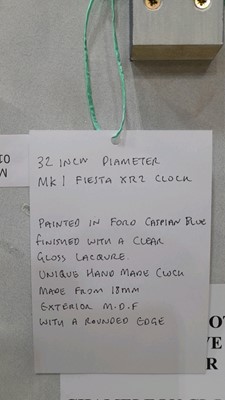 32 INCH DIAMETER
MK1 FIESTA XR2 CLOCK
PAINTED IN FORD CASPIAN BLUE
FINISHED WITH A CLEAR
GLOSS LACQURE.
UNIQUE HAND MADE CLOCK
MADE FROM 18MM
EXTERIOR M.D.F
WITH A ROUNDED EDGE